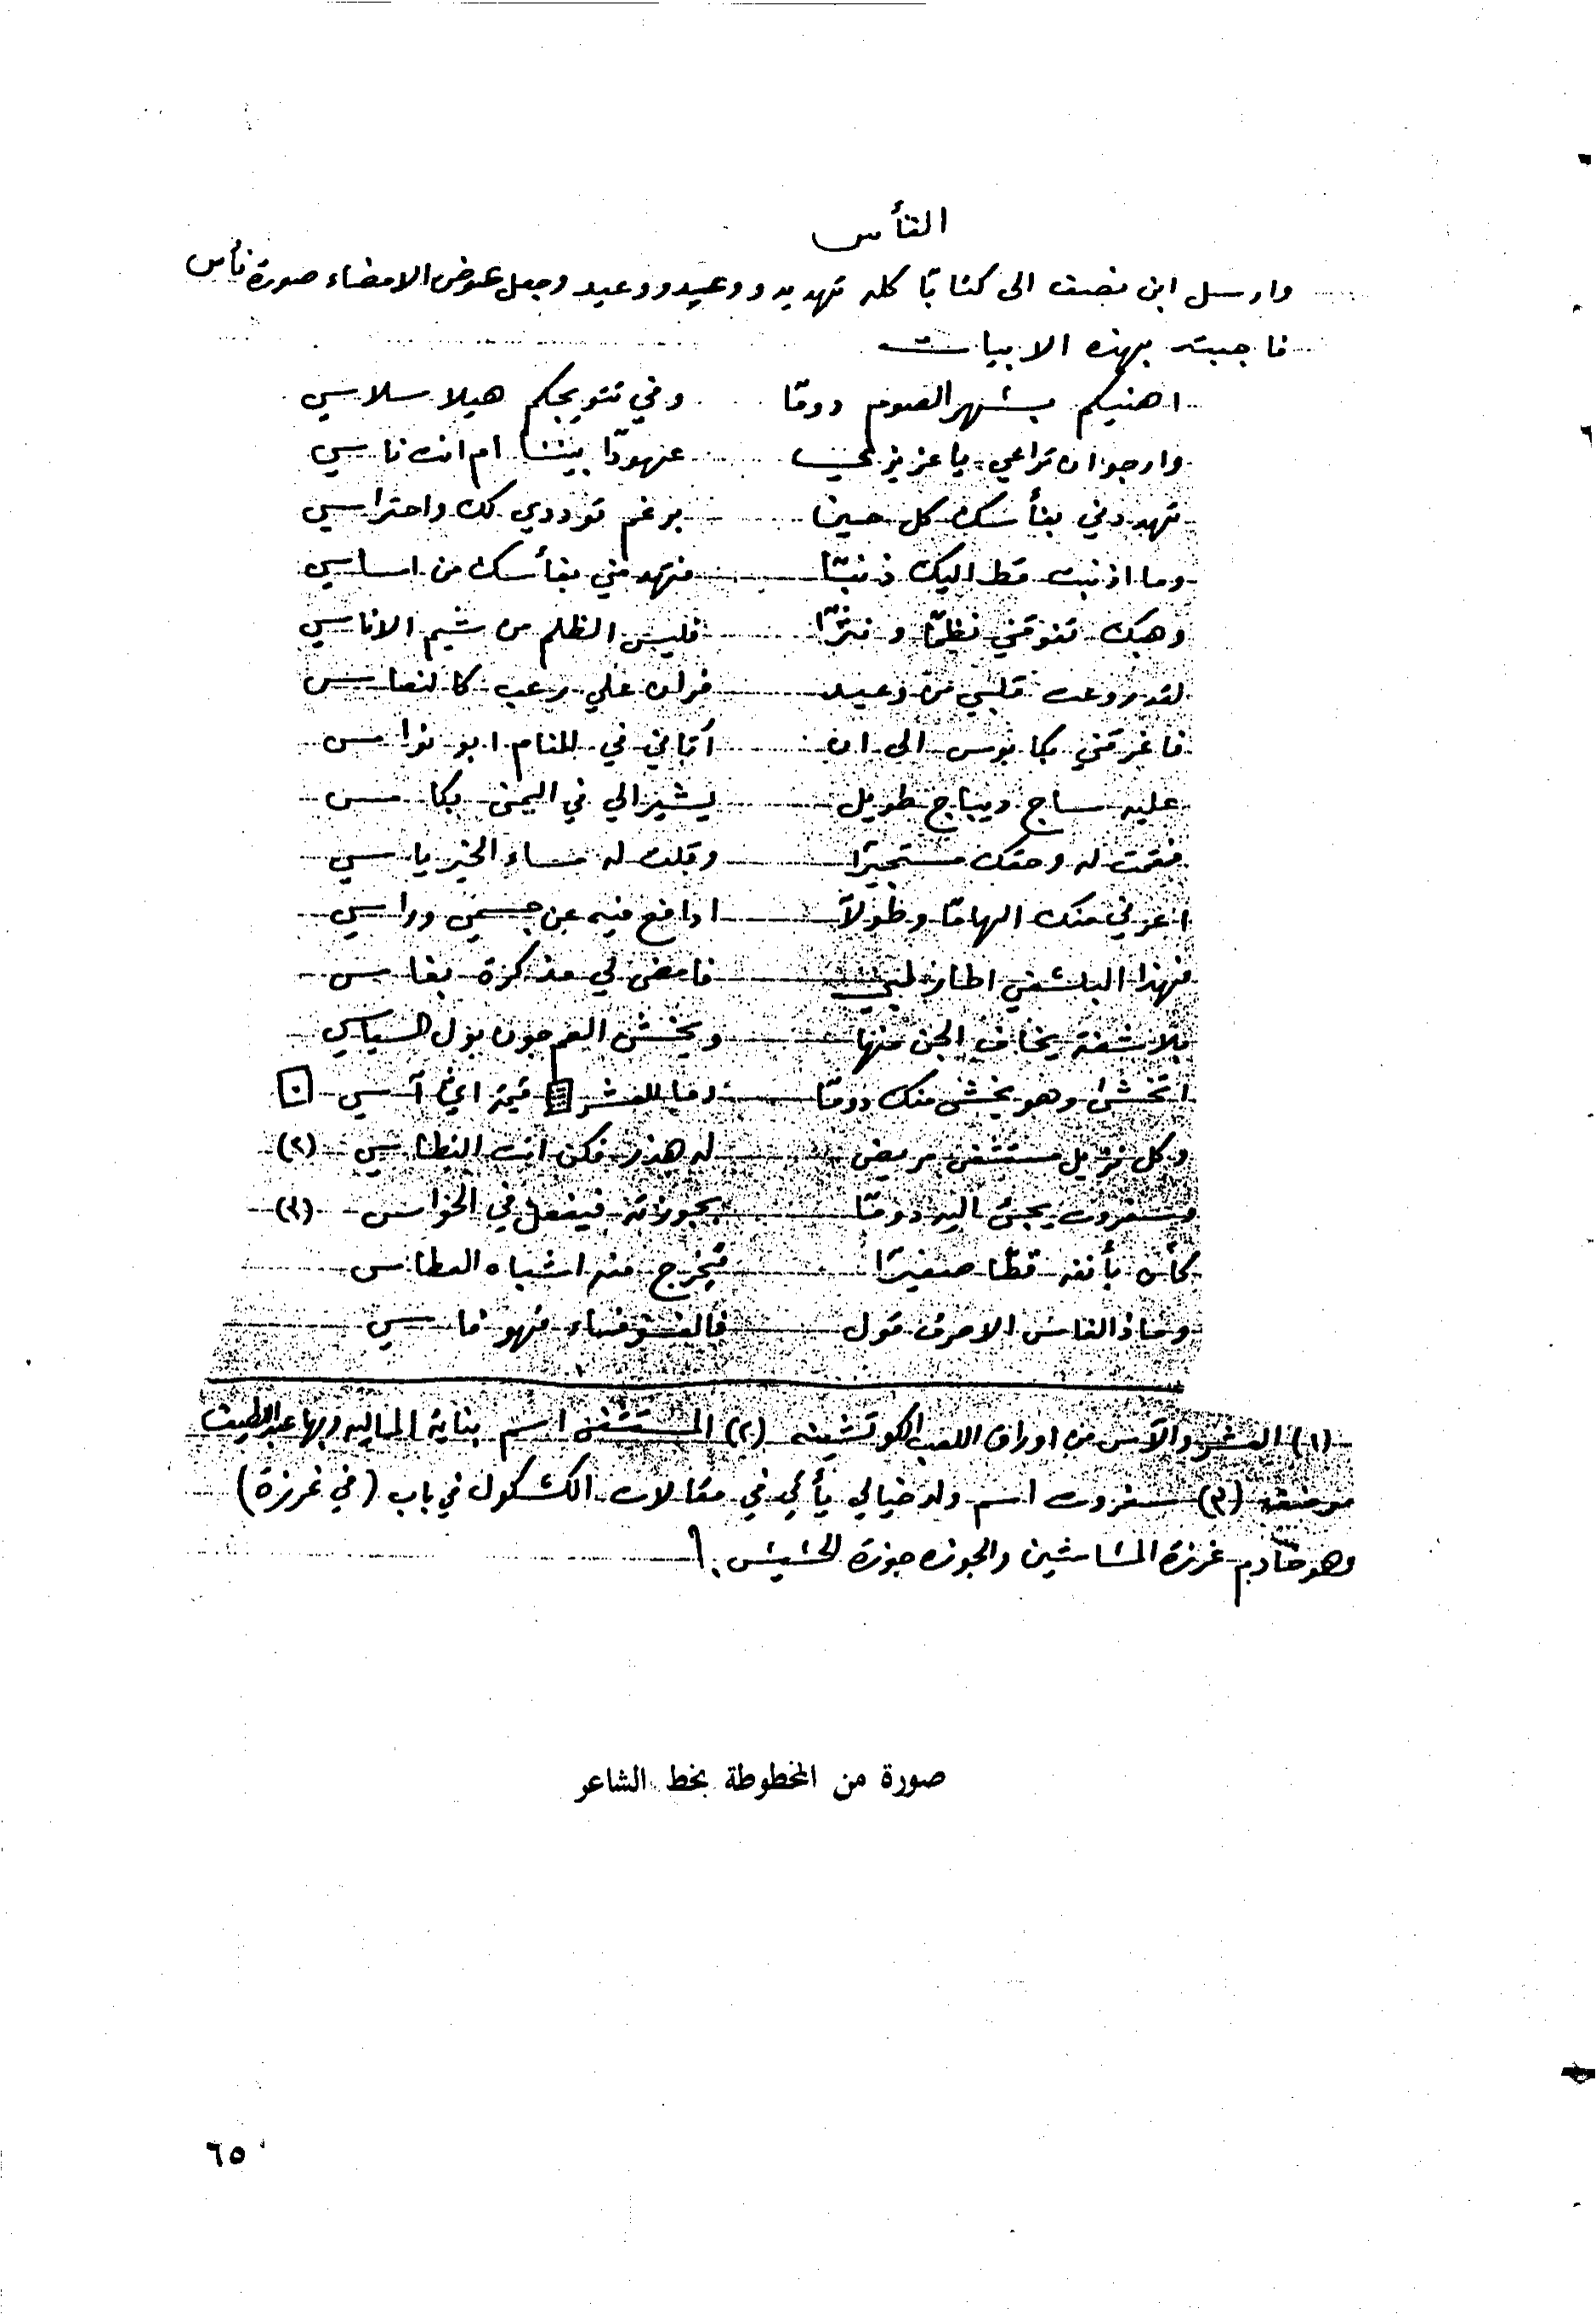 الفأس
وارسل ابن نصف الى كتابًا كله تهديد ووعيد ووعيد وجعل عوض الامضاء صورة فأس
فاجبته بهذه الابيات
اهنيكم بشهر الصوم دومًا وفي تتويجكم هيلا سلاسي
وارجو ان تراعي يا عزيزي عهودًا بيننا ام انت ناسي
تهددني بفأسك كل حين برغم توددي لك واحتراسي
وما اذنبت قط اليك ذنبًا فتهدمني بفأسك من اساسي
وهبك تفوقني نظمًا ونثرًا فليس الظلم من شيم الاناسي
لقد روعت قلبي من وعيد فران علي رعب كالنعاس
فاغرقني بكابوس الى ان أتاني في المنام ابو نواس
عليه ساج ديباج طويل يشير الي في اليمنى بكاس
فقمت له وحقك مستجيرًا وقلت له مساء الخير ياسي
اعرني منك الهامًا وطولاً ادافع فيه عن جسمي وراسي
فهذا البلشفي اطار لبي فامضى لي مذكرة بفاس
بلاشفة يخاف الجن منها ويخشى العم جون بول السياسي
اتخشى وهو يخشى منك دومًا وما للعشر قيمة اي آس (١)
وكل نزيل مستشفى مريض له هذر فكن انت النطاسي (٢)
وسفروت يجئ اليه دومًا بجوزته فيفعل في الحواس (٣)
كأن بأنفه قطًا صغيرًا فيخرج منه اشباه العطاس
وماذا الفاس الا حرف قول فالف وفاء فهو فاسي
(١) العشر والآس من اوراق اللعب الكوتشينه (٢) المستشفى اسم بناية المالية وبها عبد اللطيف
موظف (٣) سفروت اسم ولد خيالي يأتي في مقالات الكشكول في باب (في غرزة)
وهو خادم غرزة الحشاشين والجوزه جوزة الحشيش.
صورة من المخطوطة بخط الشاعر
٦٥